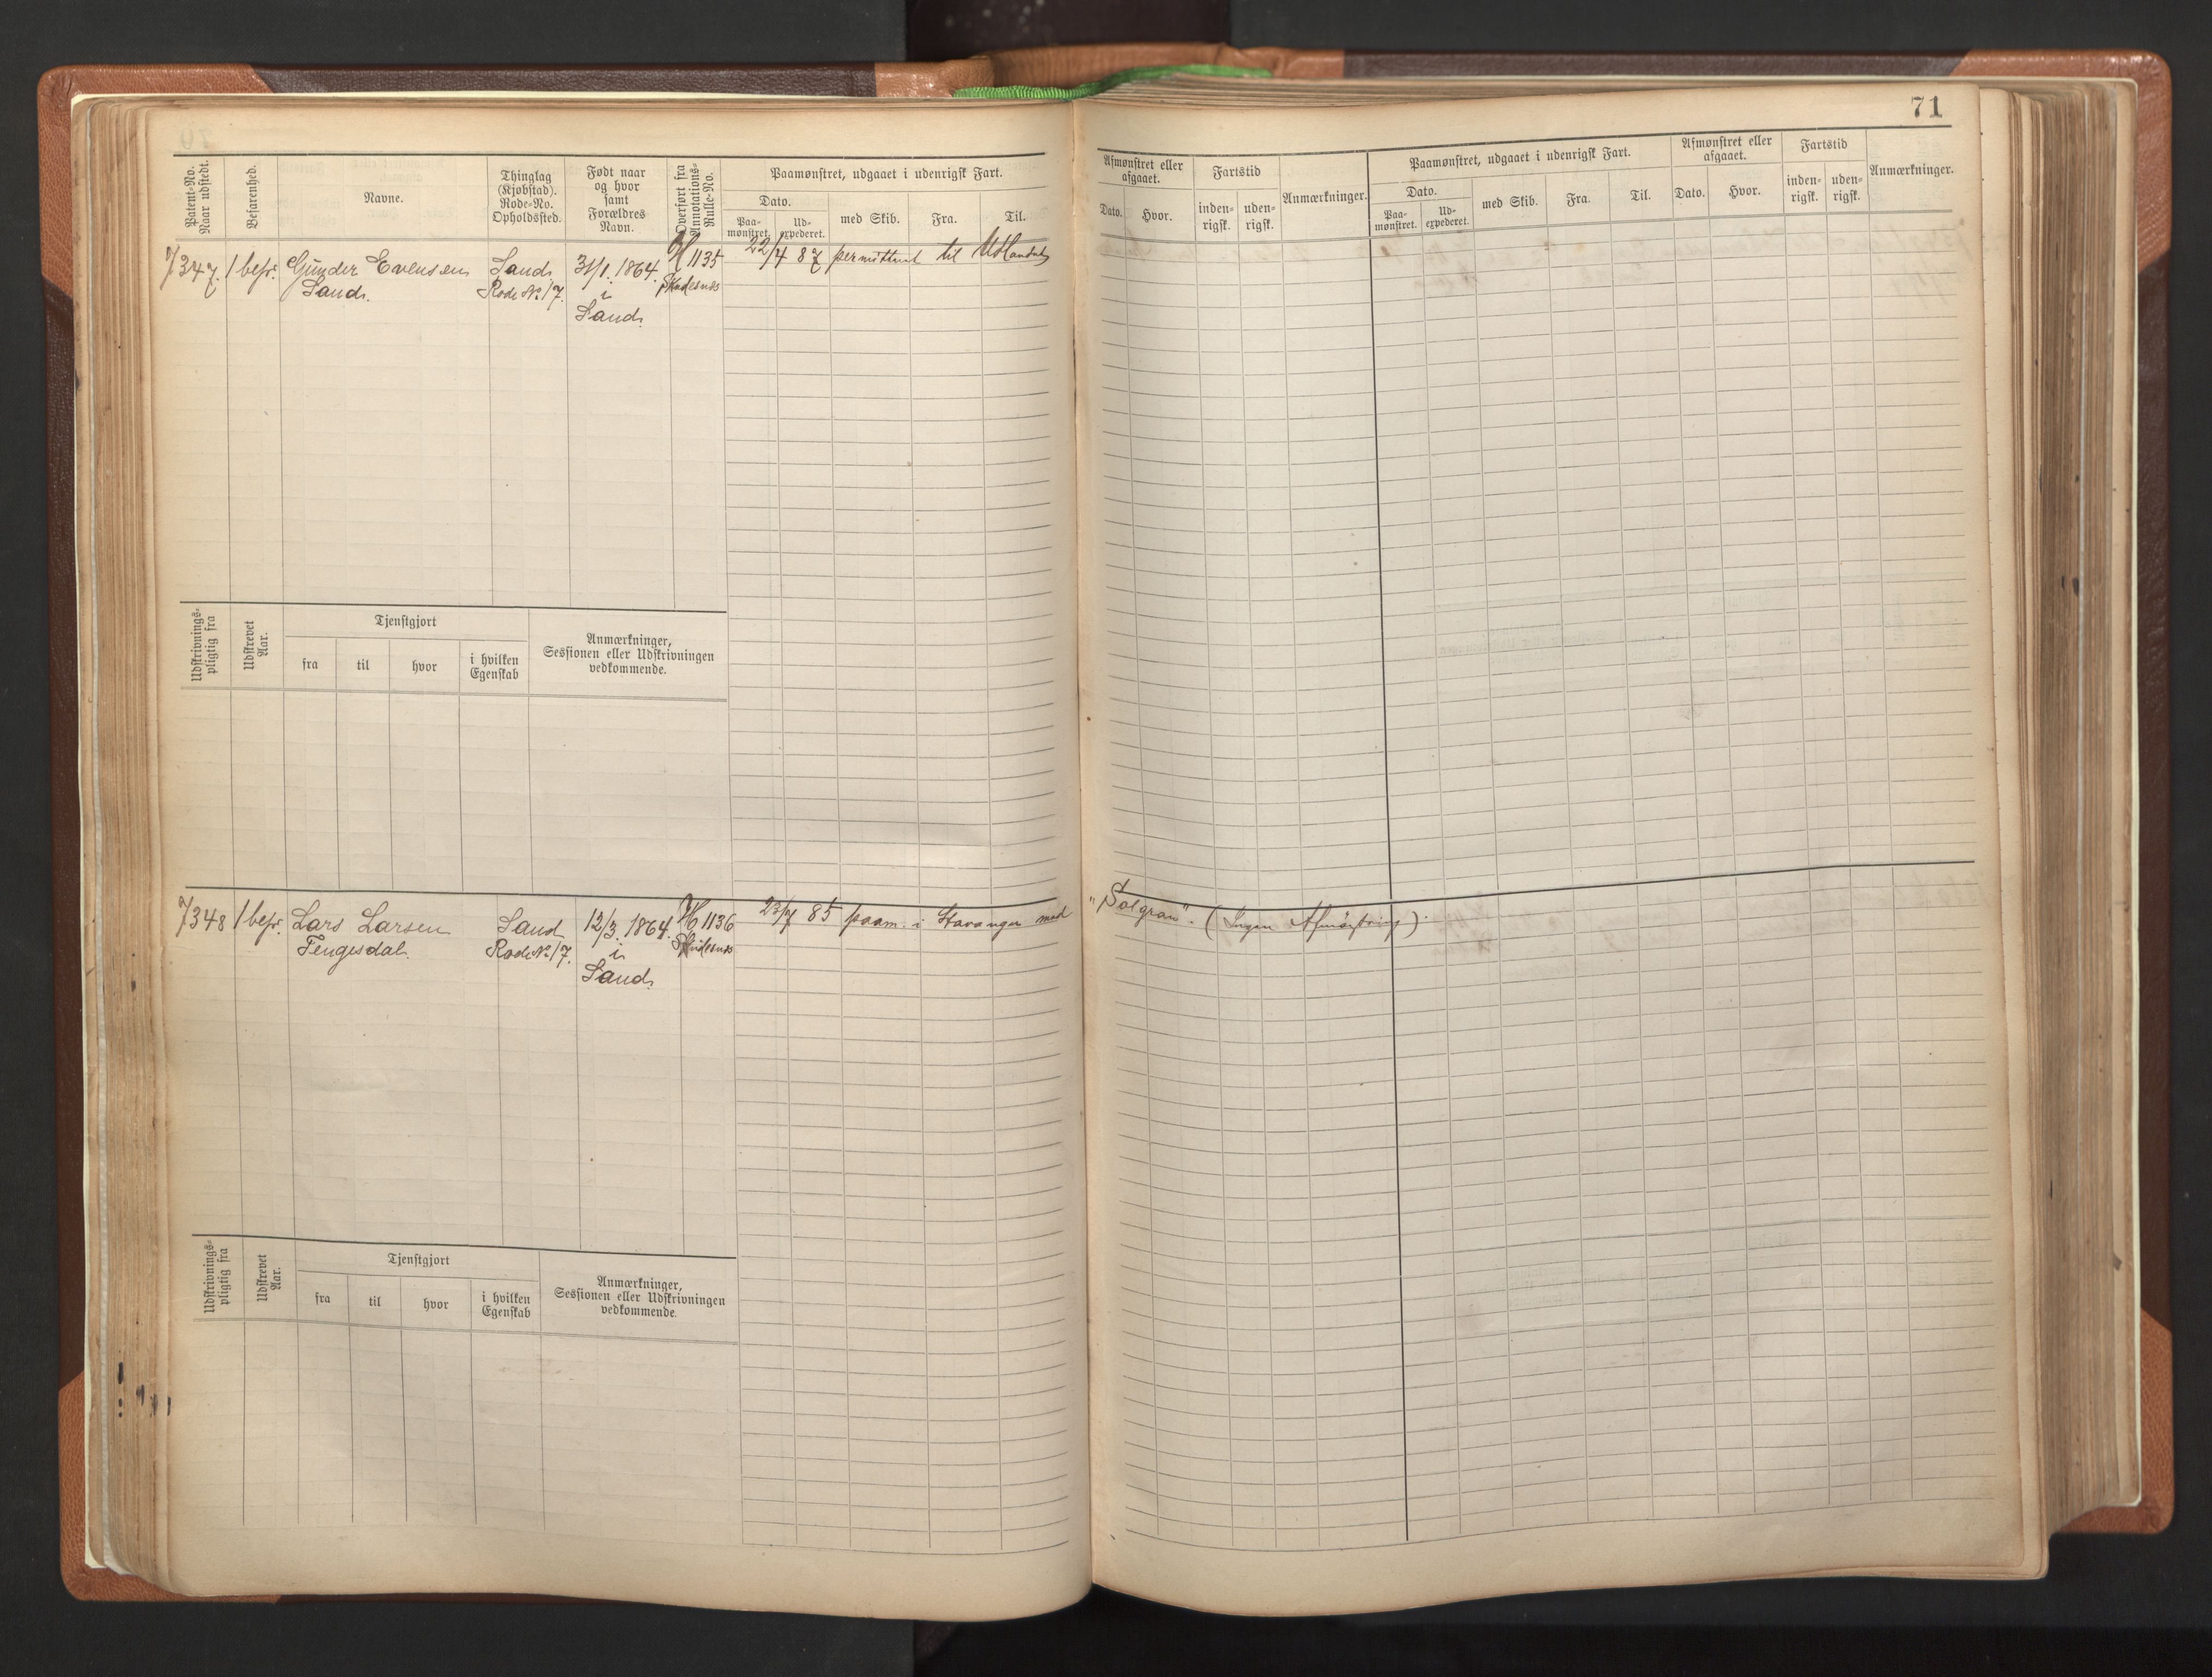 71
Patent-No.
Naar udstedt.
Befarenhed.
Navne.
Thinglag
(Kjøbstad).
Rode-No.
Opholdssted.
Født naar
og hvor
samt
Forældres
Navn.
Overført fra
Annotations-
Rulle-No.
Paamønstret, udgaaet i udenrigsk Fart.
Dato.
Paa-
mønstret.
Ud-
expederet.
med Skib.
Fra.
Til.
Afmønstret eller
afgaaet.
Dato.
Hvor.
Fartstid
inden-
rigsk.
uden-
rigsk.
Anmærkninger.
Paamønstret, udgaaet i udenrigsk Fart.
Dato.
Paa-
mønstret.
Ud-
expederet.
med Skib.
Fra.
Til.
Afmønstret eller
afgaaet.
Dato.
Hvor.
Fartstid
inden-
rigsk.
uden-
rigsk.
Anmærkninger.
7347. 1 befr. Gunder Evensen Sand 31/1. 1864. H 1135 22/4 87 permitteret til Udlandet
Sand. Rode No 17. i Skudesnes
Sand.
Udskrivnings-
pligtig fra
Udskrevet
Aar.
Tjenstgjort
fra
til
hvor
i hvilken
Egenskab
Anmærkninger,
Sessionen eller Udskrivningen
vedkommende.
7348 1 befr. Lars Larsen Sand 12/3. 1864. H 1136 23/7 85 paam. i Stavanger med "Solgran". (Ingen Afmønstring).
Tengesdal. Rode No 17. i Skudesnes
Sand.
Udskrivnings-
pligtig fra
Udskrevet
Aar.
Tjenstgjort
fra
til
hvor
i hvilken
Egenskab
Anmærkninger,
Sessionen eller Udskrivningen
vedkommende.